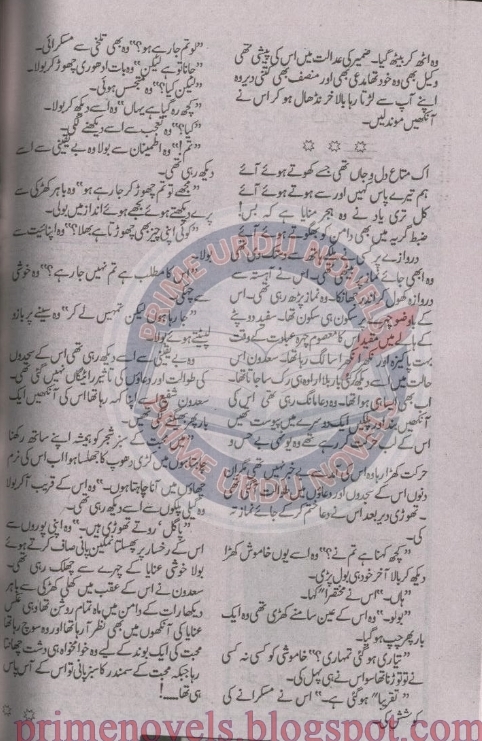 وہ اٹھ کر بیٹھ گیا۔ ضمیر کی عدالت میں اس کی پیشی تھی
وکیل بھی وہ خود تھا مدعی بھی اور منصف بھی کتنی دیر وہ
اپنے آپ سے لڑتا رہا بالآخر نڈھال ہو کر اس نے
آنکھیں موندلیں۔
اک متاع دل و جاں تھی جسے کھوتے ہوئے آئے
ہم تیرے پاس نہیں اور سے ہوتے ہوئے آئے
کل تری یاد نے وہ ہجر منایا ہے کہ بس!
ضبط گریہ میں بھی دامن کو بھگوتے ہوئے آئے
دروازے پر دستک دی تھی
وہ ابھی جائے نماز اس نے آہستہ سے
دروازہ کھول کر اندر جھانکا۔ وہ نماز پڑھ رہی تھی۔ اس
کے باوضو چہرے پر سکون ہی سکون تھا۔ سفید دوپٹے
کے ہالے میں مقید اس کا معصوم چہرہ عبادت کے وقت
بہت پاکیزہ اور سا لگ رہا تھا۔ سعدون اس
حالت میں اسے دیکھ کر ہی رک سا جاتا تھا۔
اب بھی ایسا ہی ہوا تھا۔ وہ دعا مانگ رہی تھی اس کی
آنکھیں بند اور ایک دوسرے میں پیوست تھیں
اس کے لب حرکت کر رہے تھے وہ یونہی بے حس و
حرکت کھڑا رہا وہ اس کی سے بے خبر نہیں تھی مگر ان
دنوں اس کے سجدوں اور دعاؤں میں طوالت آ گئی تھی
۔ تھوڑی دیر بعد اس نے دعا ختم کر کے جائے نماز تہہ
کی۔
”کچھ کہنا ہے تم نے؟“ وہ اسے یوں خاموش کھڑا
دیکھ کر بالآخر خود ہی بول پڑی۔
”ہاں۔“ اس نے مختصراً کہا۔
”بولو۔“ وہ اس کے عین سامنے کھڑی تھی وہ ایک
بار پھر چپ ہو گیا۔
”تیاری ہو گئی تمہاری؟“ خاموشی کو کسی نہ کسی
نے تو توڑنا تھا سو اس نے ہی پہل کی۔
”تقریباً ہو گئی ہے۔“ اس نے مسکرانے کی
کوشش کی۔
”تو تم جا رہے ہو؟“ وہ بھی تلخی سے مسکرائی۔
”جانا تو ہے لیکن“ وہ بات ادھوری چھوڑ کر بولا۔
”لیکن کیا؟“ وہ متجسس ہوئی۔
”کچھ رہ گیا ہے یہاں“ وہ اسے دیکھ کر بولا۔
”کیا؟“ وہ تعجب سے اسے دیکھنے لگی۔
”تم!“ وہ اطمینان سے بولا وہ بے یقینی سے اسے
دیکھ رہی تھی۔
”مجھے تو تم چھوڑ کر جا رہے ہو“ وہ باہر کھڑکی سے
پرے دیکھتے ہوئے بجھے ہوئے انداز میں بولی۔
”کوئی اپنی چیز بھی چھوڑتا ہے بھلا؟“ وہ اپنائیت سے
بولا۔
”اس کا مطلب ہے تم نہیں جا رہے؟“ وہ خوشی
سے چہکی۔
”جا رہا ہوں لیکن تمہیں لے کر“ وہ سینے پر بازو
لپیٹتے ہوئے بولا۔
وہ بے یقینی سے اسے دیکھ رہی تھی اس کے سجدوں
کی طوالت اور دعاؤں کی تاثیر رائیگاں نہیں گئی تھی۔
سعدون کہہ رہا تھا اس کی آنکھیں ایک
بار پھر
کے سبز شجر کو ہمیشہ اپنے ساتھ رکھنا
چاہتا ہوں میں کڑی دھوپ کا جھلسا ہوا اب اس کی نرم
چھاؤں میں آنا چاہتا ہوں۔“ وہ اس کے قریب آ کر بولا
وہ گیلی پلکوں سے اسے دیکھ رہی تھی۔
”پاگل‘ روتے تھوڑی ہیں۔“ وہ اپنی پوروں سے
اس کے رخسار پر پھسلتا نمکین پانی صاف کرتے ہوئے
بولا خوشی عنایا کے چہرے سے چھلک رہی تھی۔
سعدون نے اس کے عقب میں کھلی کھڑکی سے باہر
دیکھا رات کے دامن میں ماہ تمام روشن تھا وہی عکس
عنایا کی آنکھوں میں بھی نظر آ رہا تھا اور وہ سوچ رہا تھا
محبت کی ایک بوند کے لیے وہ خوامخواہ ہی دشت چھانتا
رہا جبکہ محبت کے سمندر کا میزبانی تو اس کے آس پاس
ہی تھا......!
PRIME URDU NOVELS
PRIME URDU NOVELS
primenovels.blogspot.com